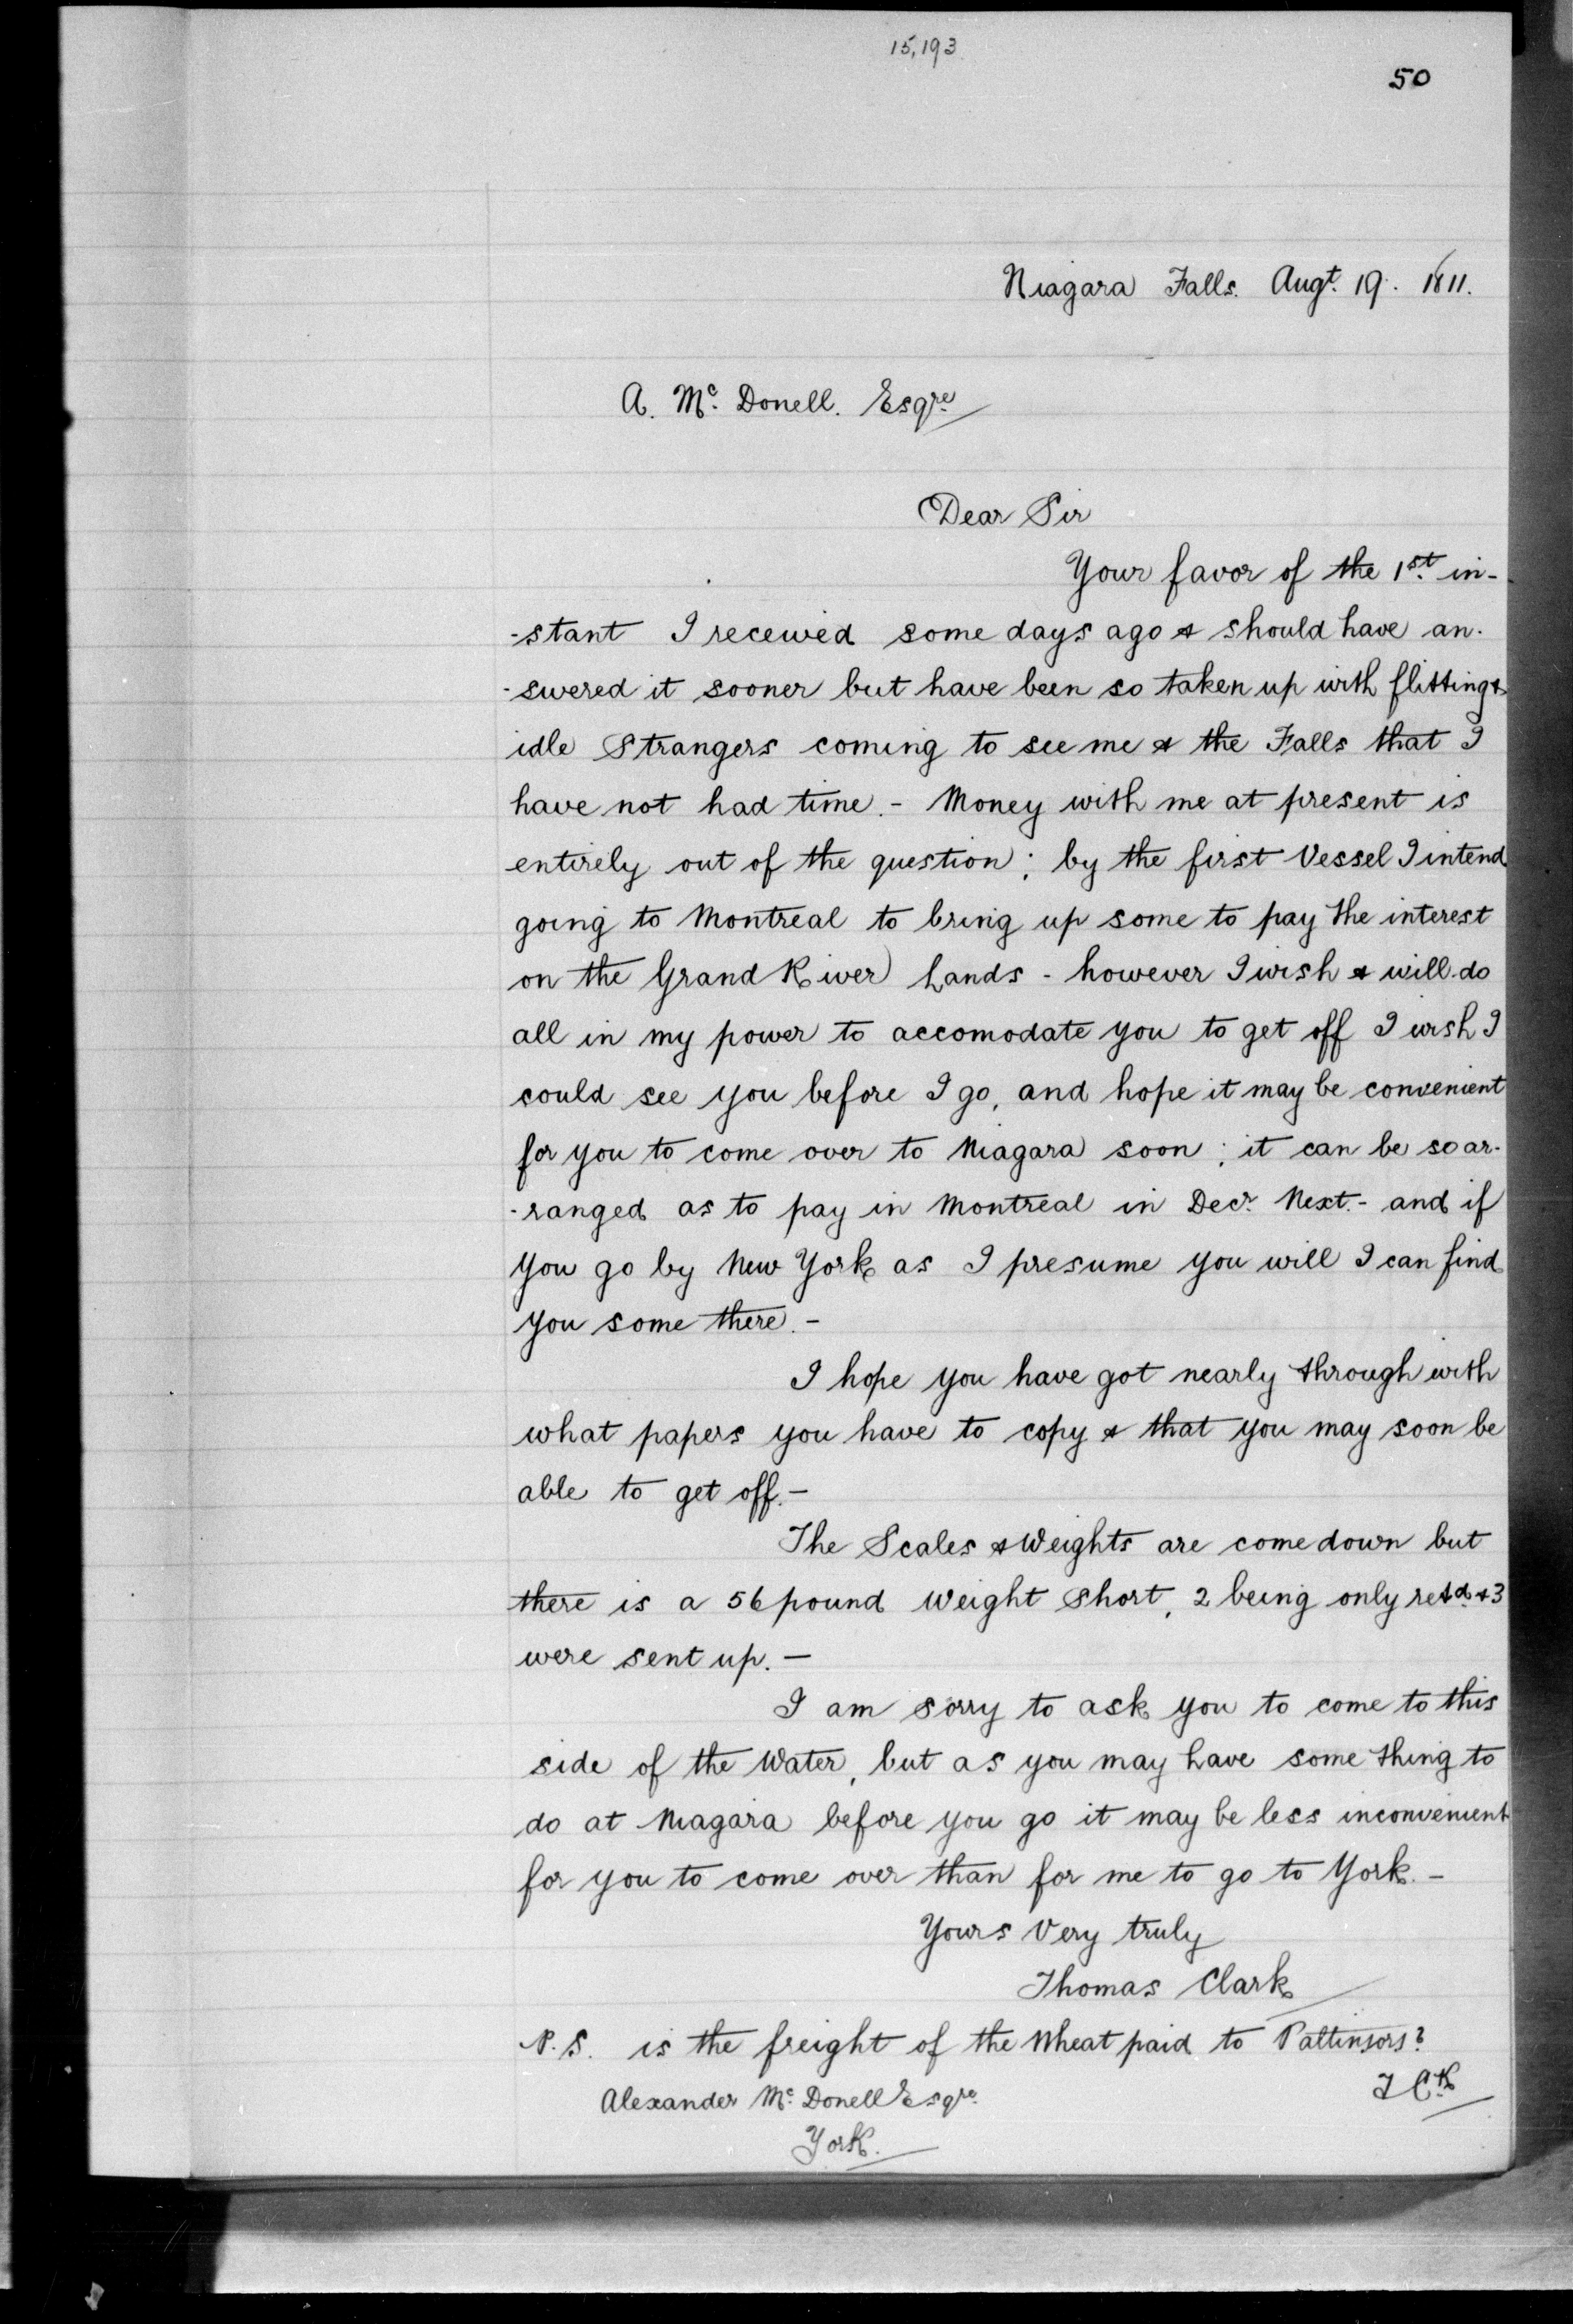 15,193
50
Niagara Falls. Augt. 19. 1811.
A. Mc. Donell. Esqre
Dear Sir
Your favor of the 1st. in-
-stant I received some days ago & should have an-
-swered it sooner but have been so taken up with flitting &
idle Strangers coming to see me & the Falls that I
have not had time. - Money with me at present is
entirely out of the question; by the first Vessel I intend
going to Montreal to bring up some to pay the interest
on the Grand River Lands - however I wish & will do
all in my power to accomodate you to get off I wish I
could see you before I go, and hope it may be convenient
for you to come over to Niagara soon; it can be so ar-
-ranged as to pay in Montreal in Decr. Next. - and if
you go by New York as I presume you will I can find
you some there. -
I hope you have got nearly through with
what papers you have to copy & that you may soon be
able to get off. -
The Scales & Weights are come down but
there is a 56 pound Weight Short, 2 being only retd. & 3
were sent up. -
I am sorry to ask you to come to this
side of the Water, but as you may have some thing to
do at Niagara before you go it may be less inconvenient
for you to come over than for me to go to York. -
Yours Very truly
Thomas Clark
P.S. is the freight of the Wheat paid to Pattinsons?
T Ck
Alexander Mc. Donell Esqre.
York.